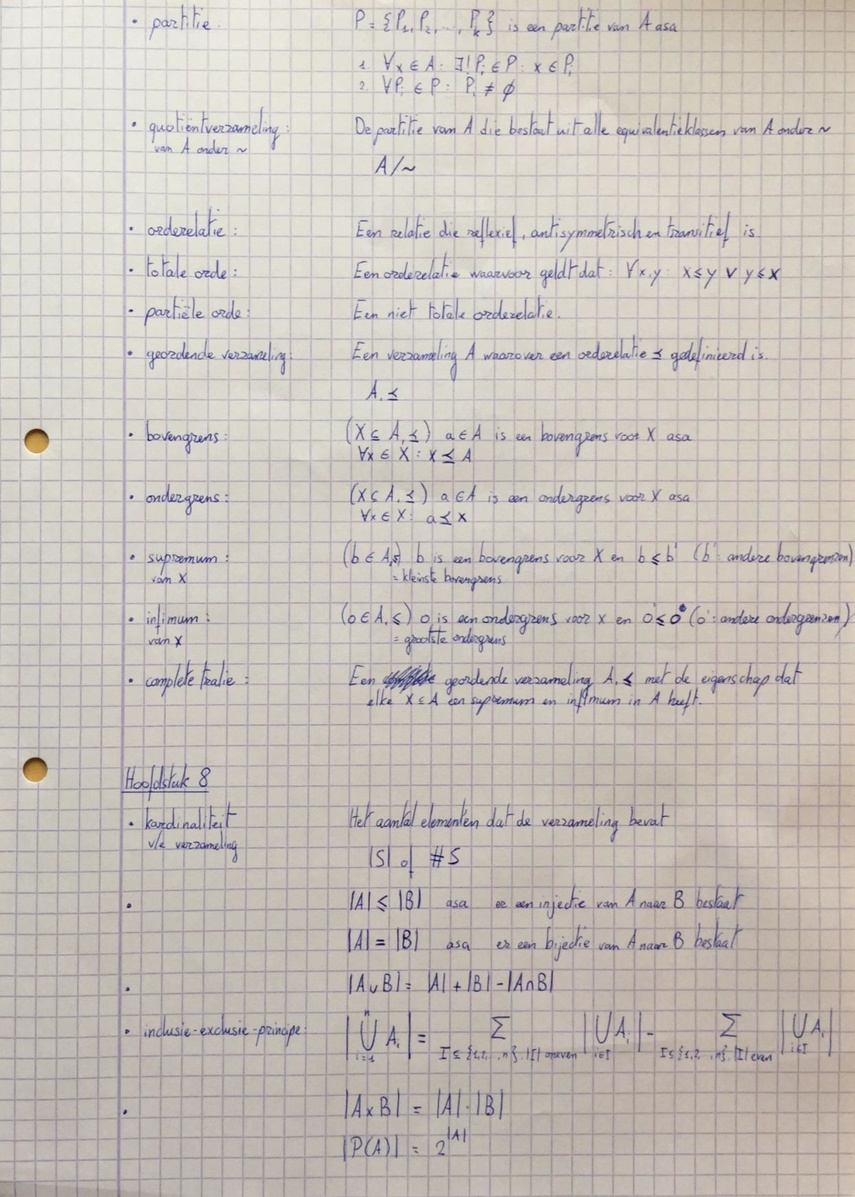 • partitie P = {P₁, P₂, ..., Pₖ} is een partitie van A asa
1. ∀x ∈ A : ∃! Pᵢ ∈ P : x ∈ Pᵢ
2. ∀Pᵢ ∈ P : Pᵢ ≠ ∅
• quotiëntverzameling: De partitie van A die bestaat uit alle equivalentieklassen van A onder ~
van A onder ~
A/~
• orderelatie : Een relatie die reflexief, antisymmetrisch en transitief is
• totale orde : Een orderelatie waarvoor geldt dat : ∀x,y : x ≤ y ∨ y ≤ x
• partiële orde : Een niet totale orderelatie.
• geordende verzameling: Een verzameling A waarover een orderelatie ≤ gedefinieerd is.
A, ≤
• bovengrens : (X ⊆ A, ≤) a ∈ A is een bovengrens voor X asa
∀x ∈ X : x ≤ A
• ondergrens : (X ⊆ A, ≤) a ∈ A is een ondergrens voor X asa
∀x ∈ X : a ≤ x
• supremum : (b ∈ A, ≤) b is een bovengrens voor X en b ≤ b' (b' : andere bovengrenzen)
van X = kleinste bovengrens
• infimum : (o ∈ A, ≤) o is een ondergrens voor X en o' ≤ o (o' : andere ondergrenzen)
van X = grootste ondergrens
• complete tralie : Een geordende verzameling A, ≤ met de eigenschap dat
elke X ⊆ A een supremum en infimum in A heeft.
Hoofdstuk 8
• kardinaliteit Het aantal elementen dat de verzameling bevat
v/e verzameling
|S| of #S
• |A| ≤ |B| asa er een injectie van A naar B bestaat
|A| = |B| asa er een bijectie van A naar B bestaat
• |A ∪ B| = |A| + |B| - |A ∩ B|
• inclusie-exclusie-principe: |⋃ᵢ₌₁ⁿ Aᵢ| = Σ I ⊆ {1,2,..,n}, |I| oneven |⋃ i∈I Aᵢ| - Σ I ⊆ {1,2,..,n}, |I| even |⋃ i∈I Aᵢ|
• |A × B| = |A| · |B|
|P(A)| = 2^|A|